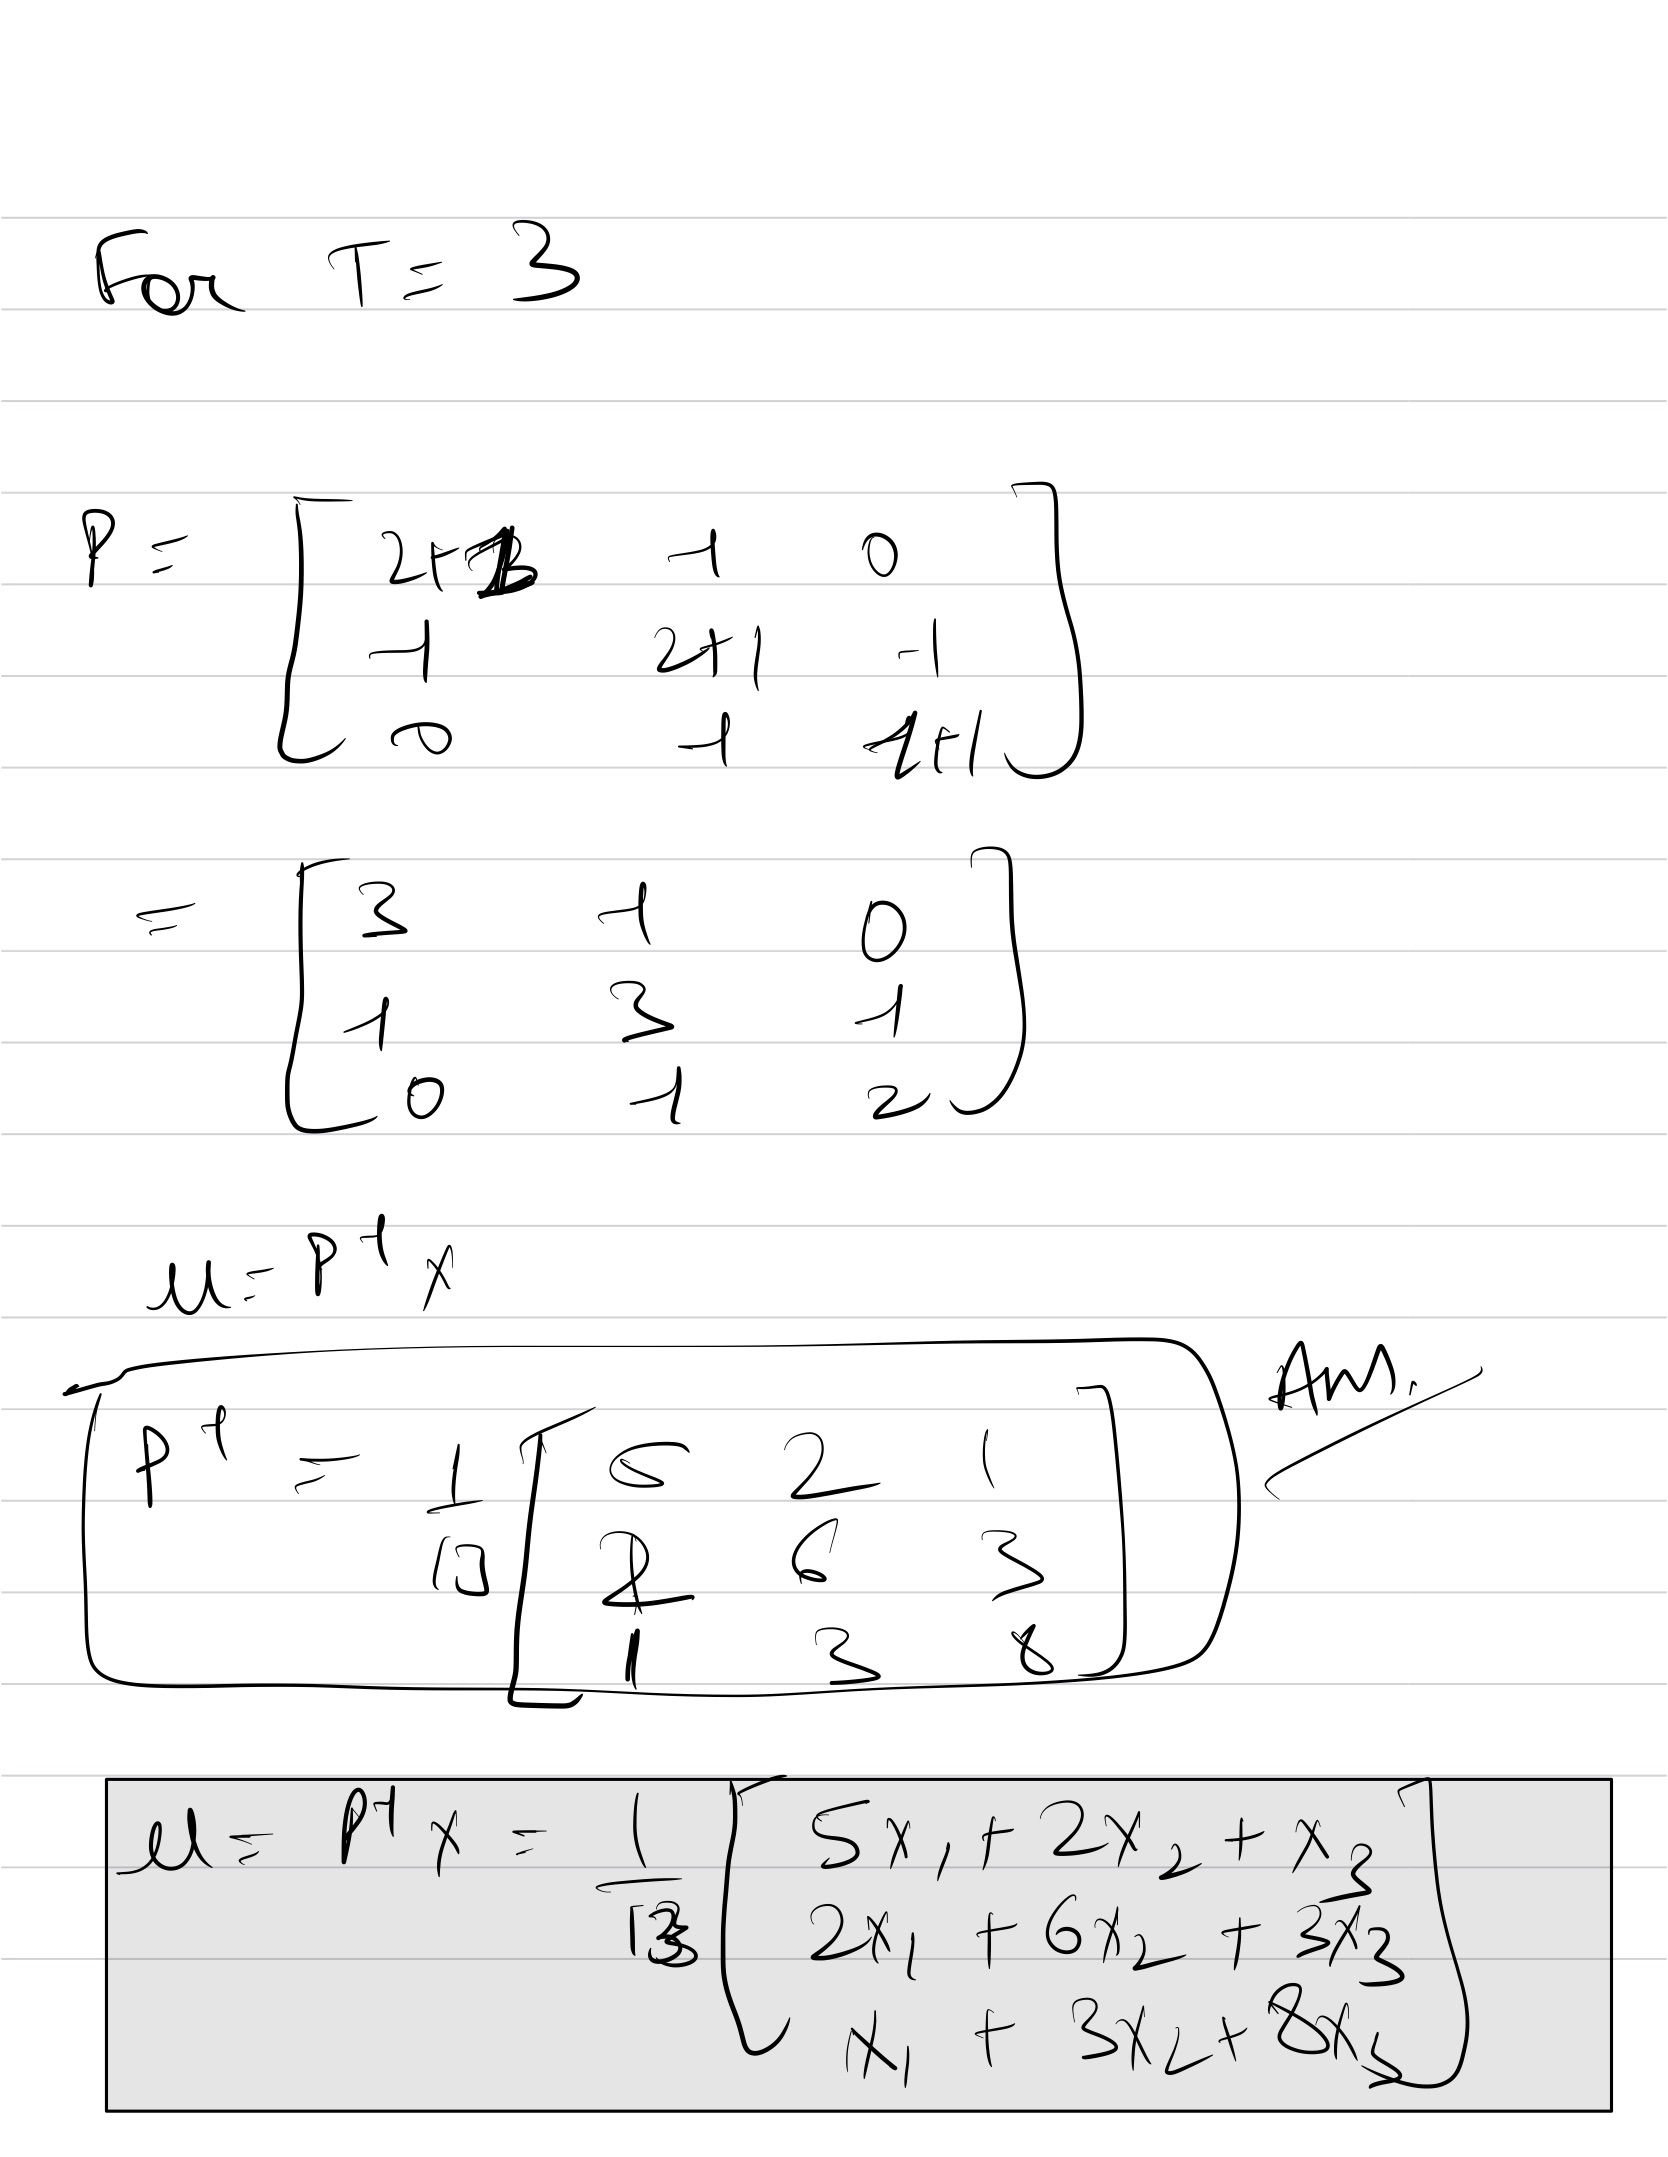 For T = 3
P = [ 2+1 -1 0
-1 2+1 -1
0 -1 1+1 ]
= [ 3 -1 0
-1 3 -1
0 -1 2 ]
u = P⁻¹ x
Ans.
P⁻¹ = 1/13 [ 5 2 1
2 6 3
1 3 8 ]
u = P⁻¹ x = 1/13 [ 5x₁ + 2x₂ + x₃
2x₁ + 6x₂ + 3x₃
x₁ + 3x₂ + 8x₃ ]